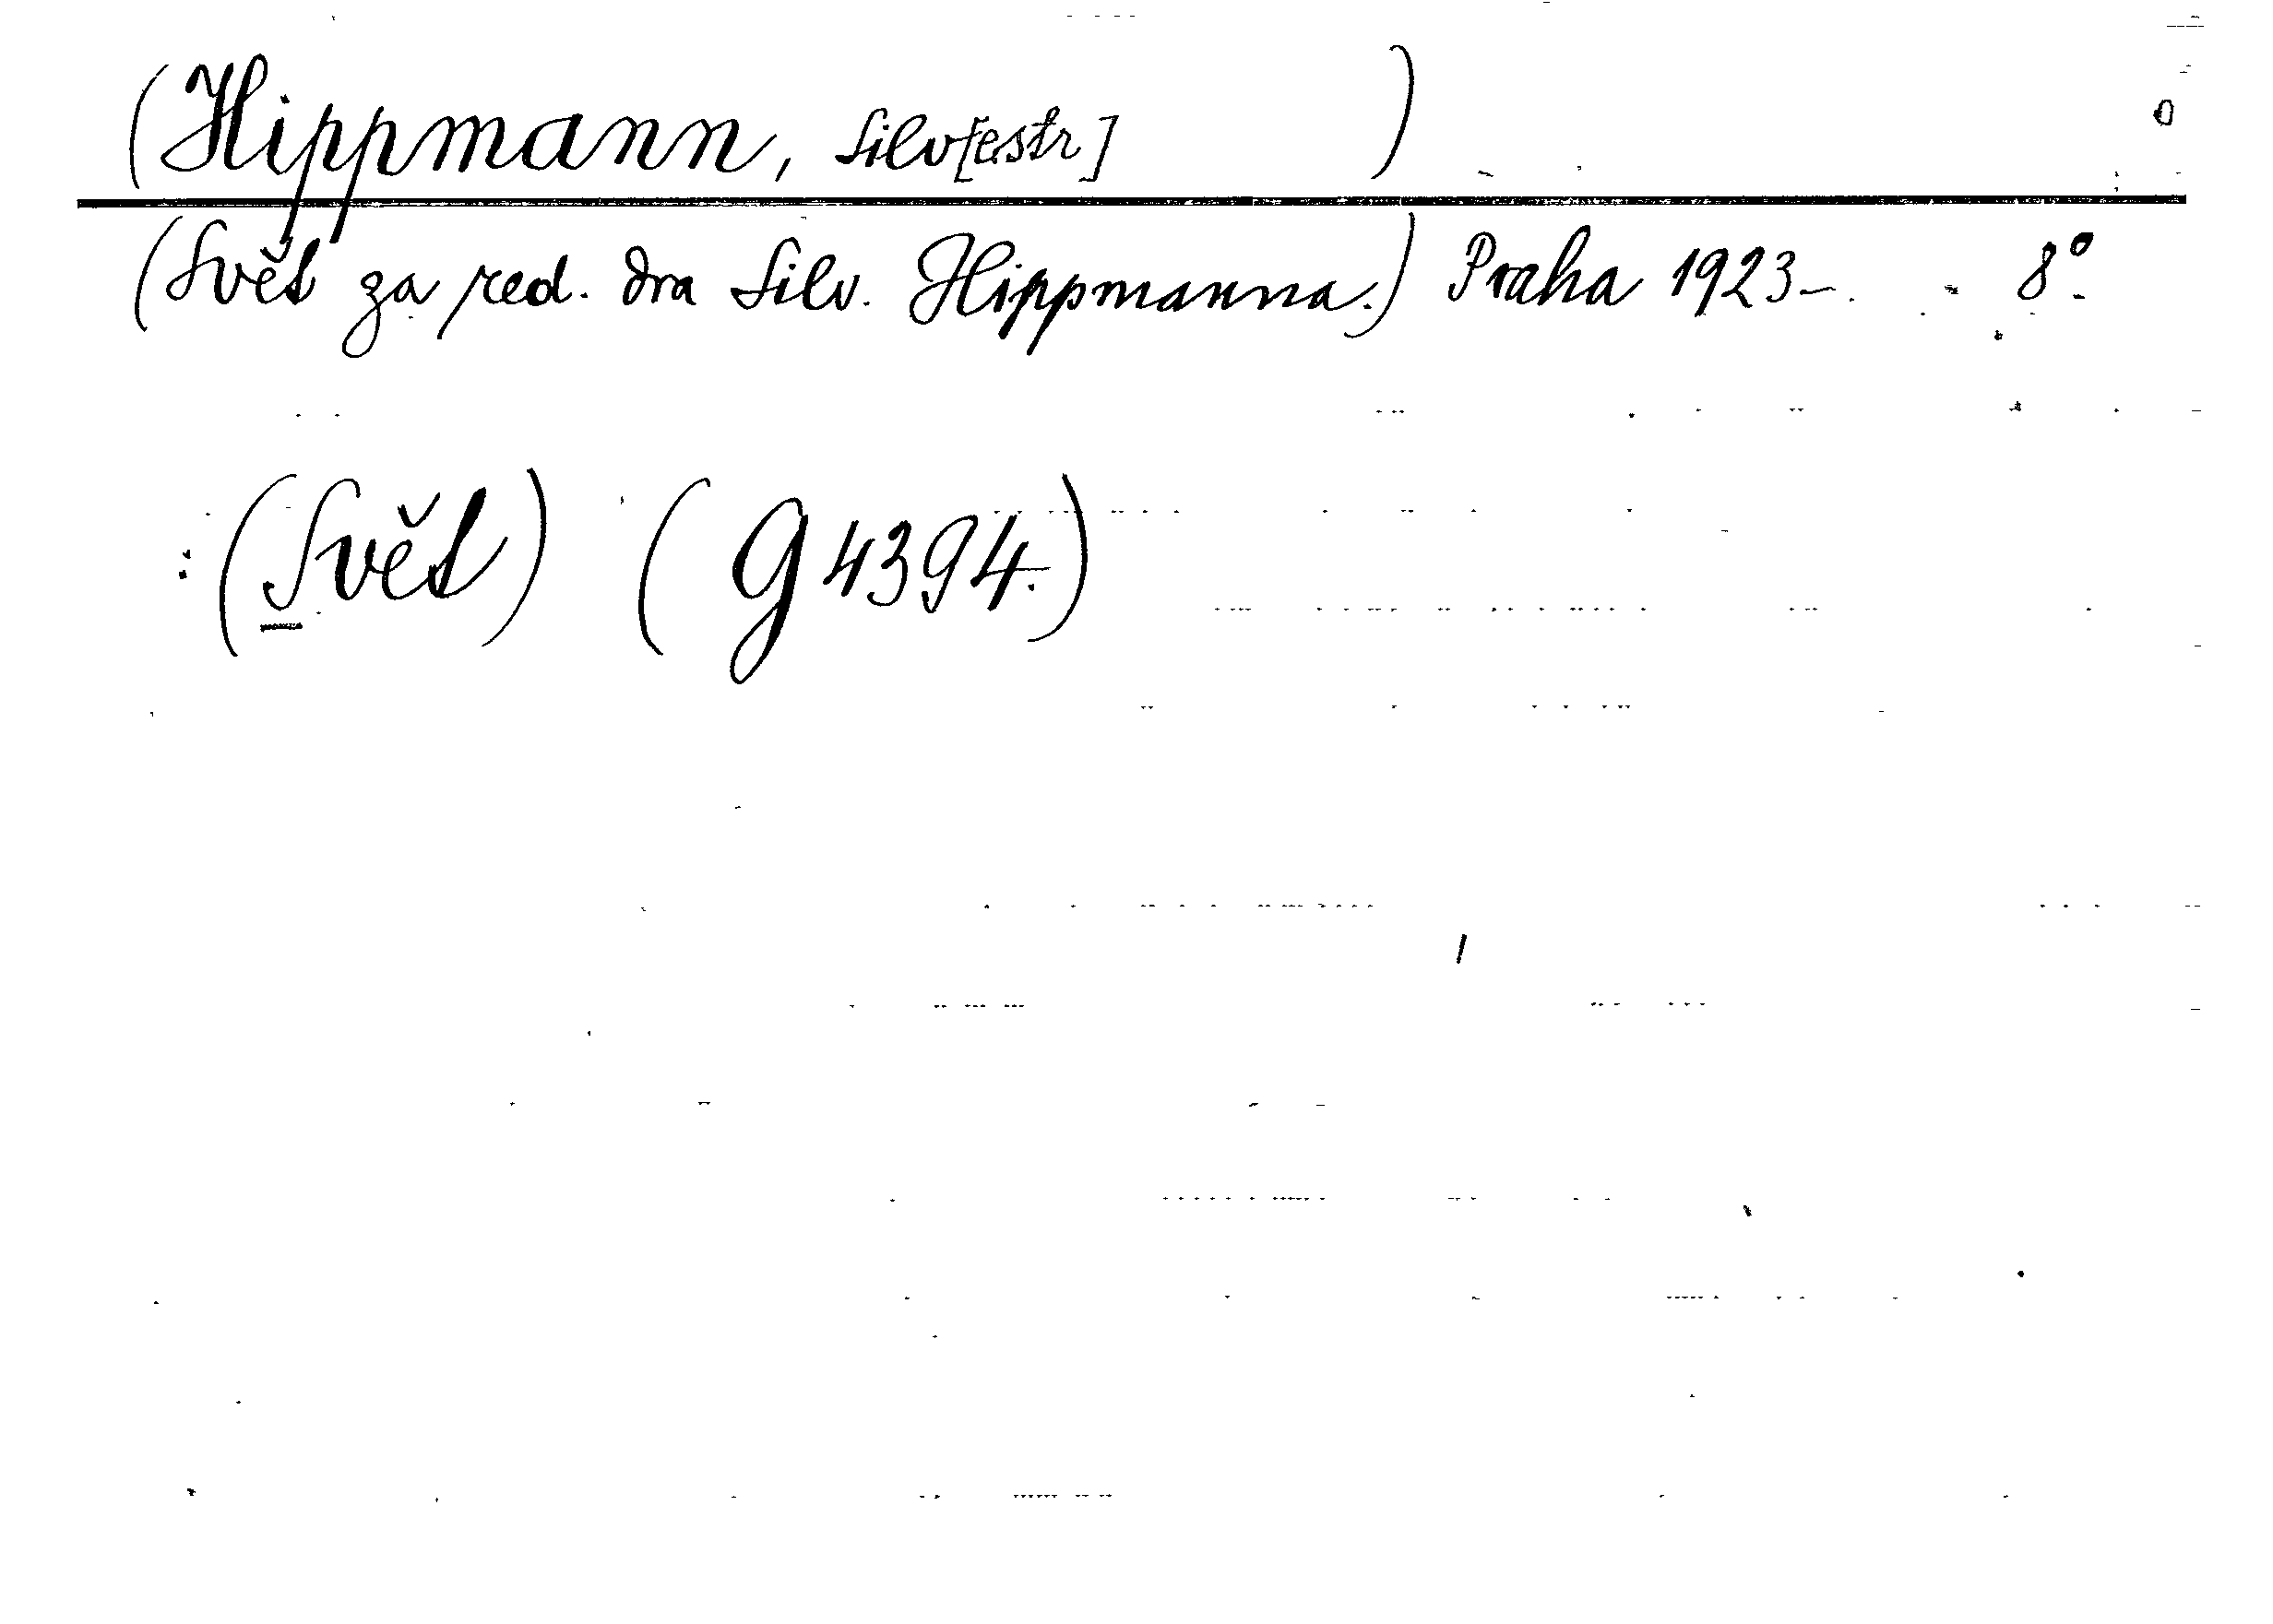 (Hippmann, Silv[estr] )
(Svět za red. dra Silv. Hippmanna.) Praha 1923-. 8°.
(Svět) (G 4394.)